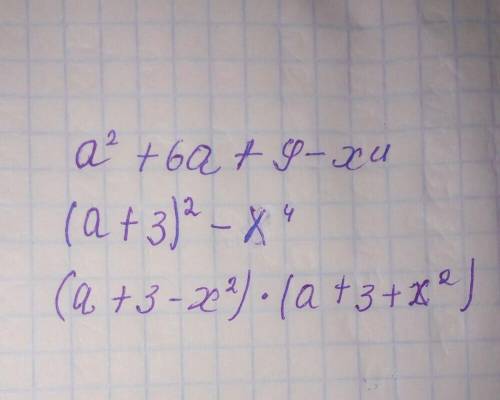 a² + 6a + 9 - x4
(a + 3)² - x⁴
(a + 3 - x²) · (a + 3 + x²)